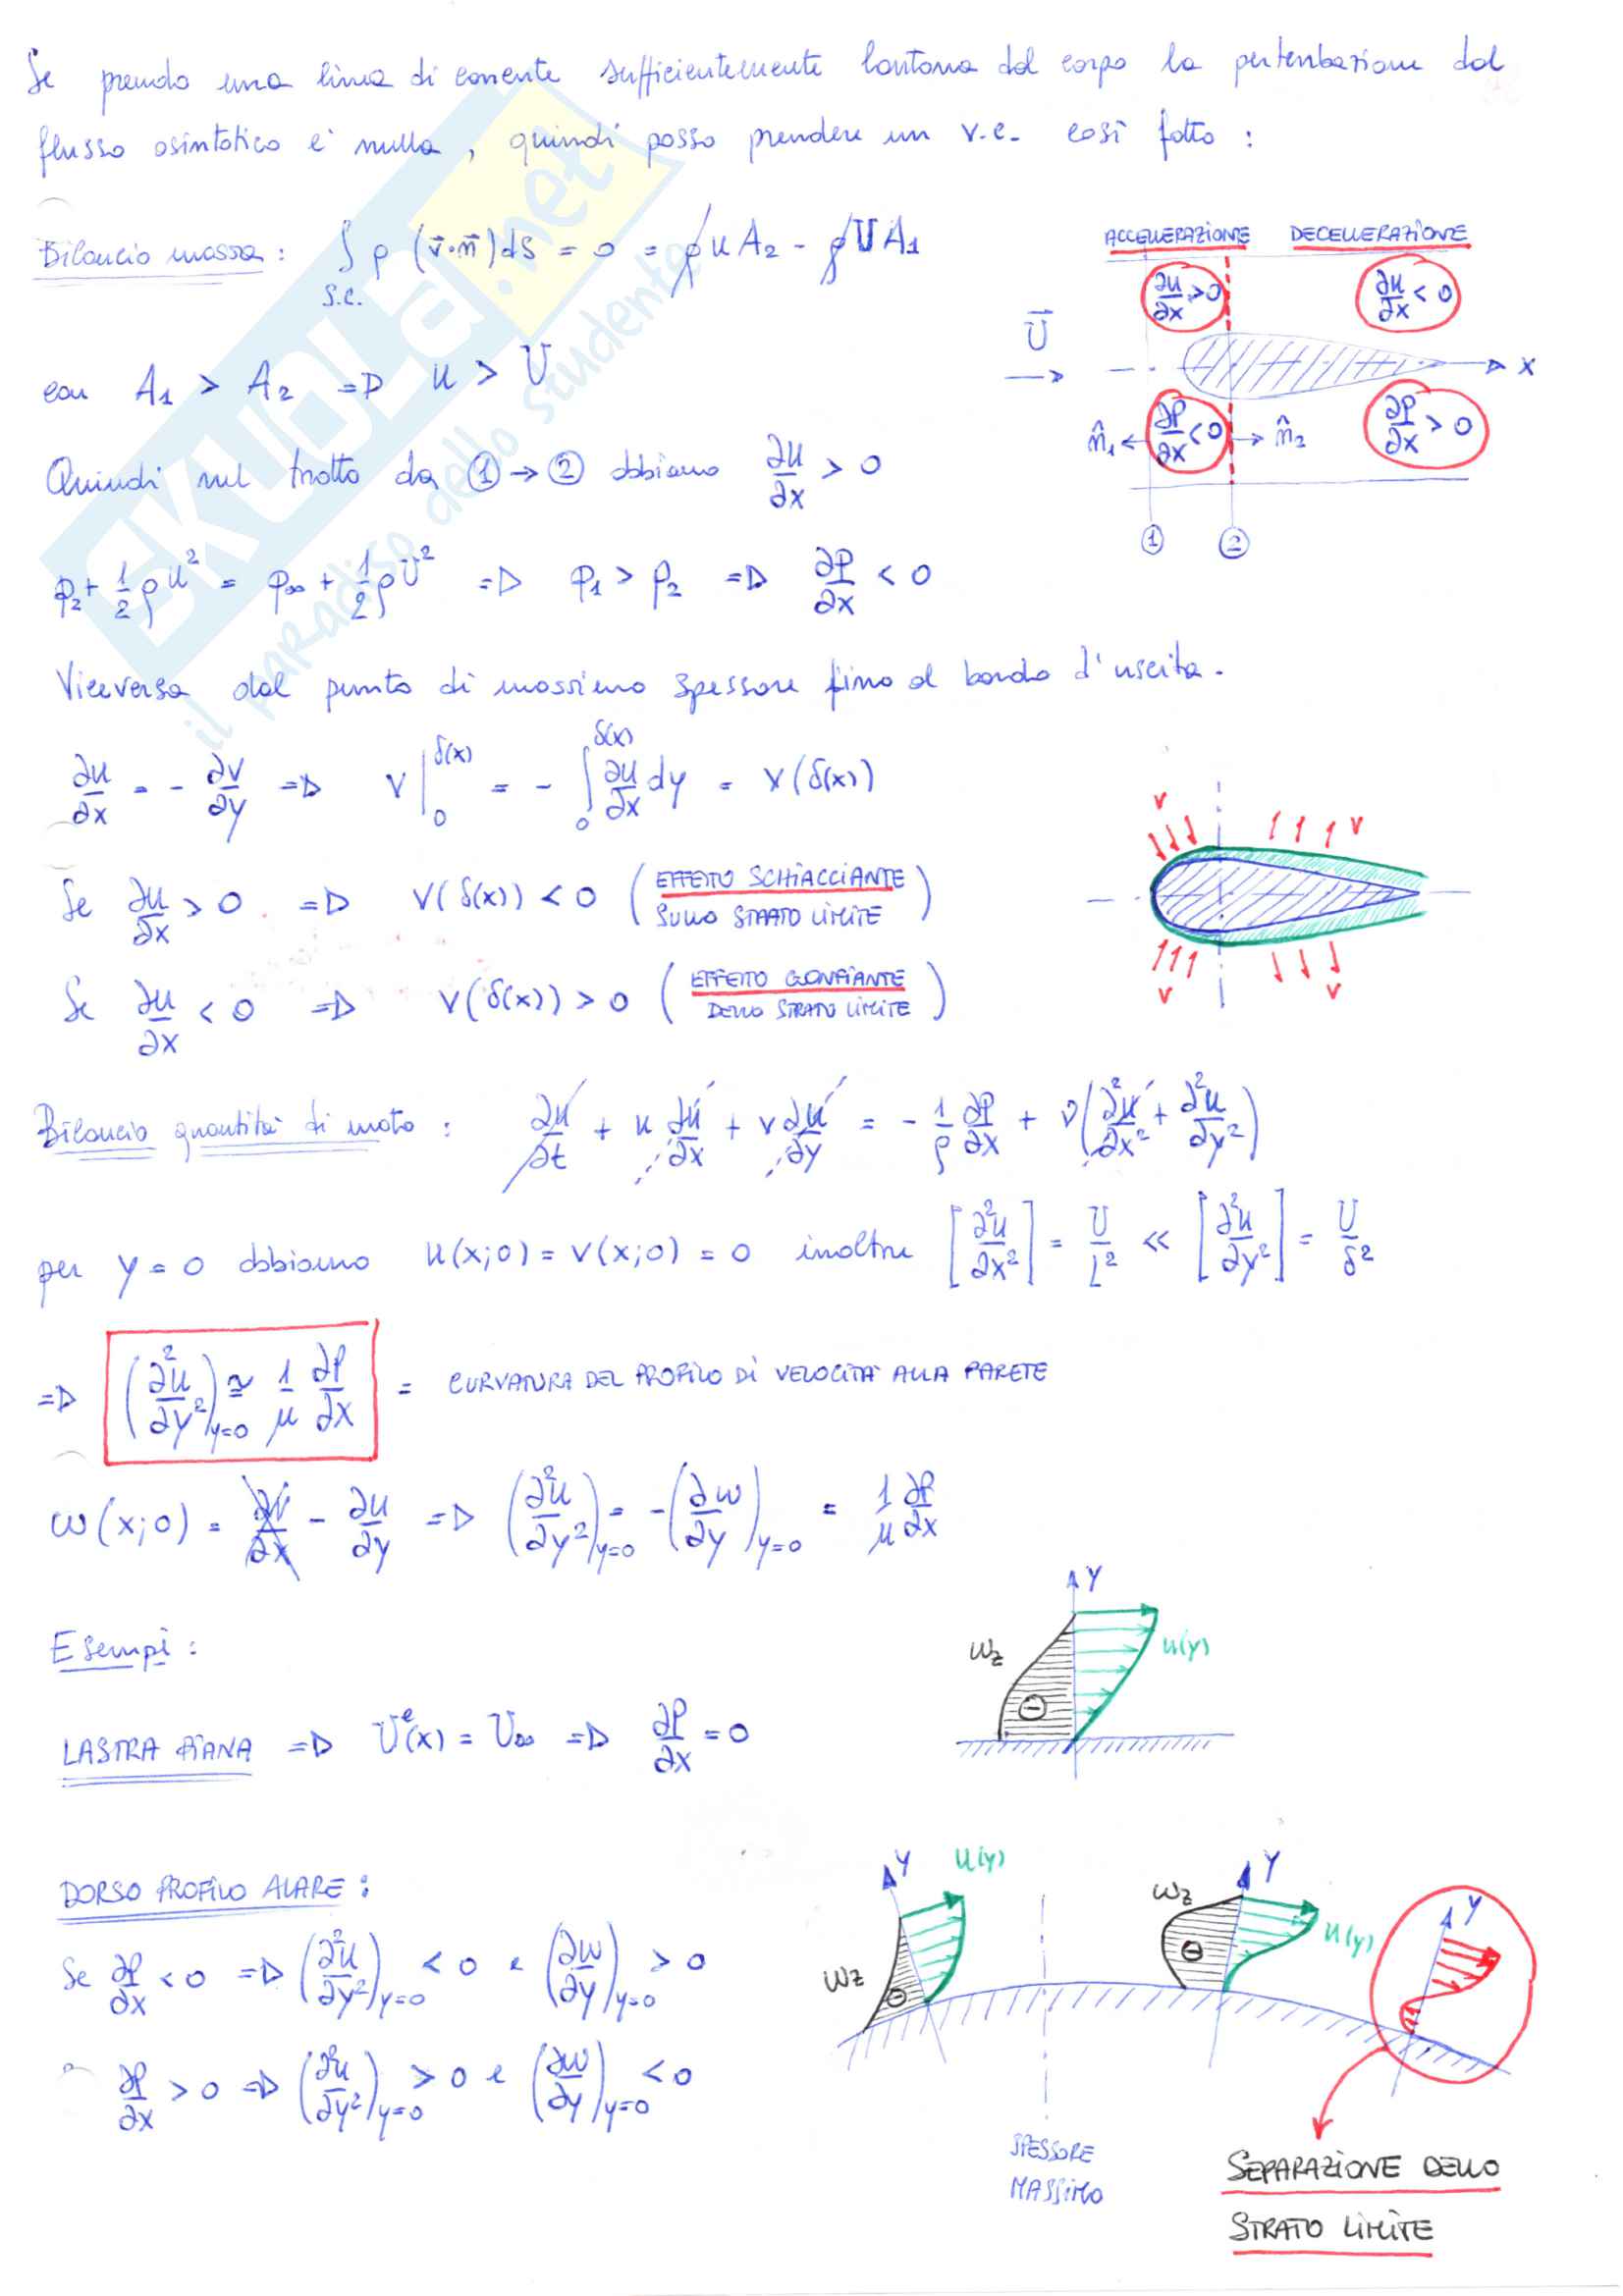 Se prendo una linea di corrente sufficientemente lontana dal corpo la perturbazione dal
flusso asintotico è nulla, quindi posso prendere un v.c. così fatto :
Bilancio massa : ∫s.c. ρ (v⃗·n⃗) ds = 0 = ρ u A₂ - ρ U A₁
con A₁ > A₂ => u > U
Quindi nel tratto da ① → ② abbiamo ∂u/∂x > 0
p₂ + 1/2 ρ u² = p∞ + 1/2 ρ U² => p₁ > p₂ => ∂P/∂x < 0
ACCELLERAZIONE DECELLERAZIONE
∂u/∂x > 0 ∂u/∂x < 0
U⃗
x
n̂₁ ∂P/∂x < 0 n̂₂ ∂P/∂x > 0
① ②
Viceversa dal punto di massimo spessore fino al bordo d'uscita.
∂u/∂x = - ∂v/∂y => v |₀^δ(x) = - ∫₀^δ(x) ∂u/∂x dy = v (δ(x))
Se ∂u/∂x > 0 => v(δ(x)) < 0 (EFFETTO SCHIACCIANTE
SULLO STRATO LIMITE)
Se ∂u/∂x < 0 => v(δ(x)) > 0 (EFFETTO GONFIANTE
DELLO STRATO LIMITE)
v v
v v
Bilancio quantità di moto : ∂u/∂t + u ∂u/∂x + v ∂u/∂y = - 1/ρ ∂P/∂x + ν(∂²u/∂x² + ∂²u/∂y²)
per y = 0 abbiamo u(x;0) = v(x;0) = 0 inoltre [∂²u/∂x²] = U/L² << [∂²u/∂y²] = U/δ²
=> (∂²u/∂y²)y=0 ≃ 1/μ ∂P/∂x = CURVATURA DEL PROFILO DI VELOCITA' ALLA PARETE
ω(x;0) = ∂v/∂x - ∂u/∂y => (∂²u/∂y²)y=0 = -(∂ω/∂y)y=0 = 1/μ ∂P/∂x
Esempi :
y
ωz u(y)
⊖
LASTRA PIANA => Uᵉ(x) = U∞ => ∂P/∂x = 0
DORSO PROFILO ALARE :
Se ∂P/∂x < 0 => (∂²u/∂y²)y=0 < 0 e (∂ω/∂y)y=0 > 0
∂P/∂x > 0 => (∂²u/∂y²)y=0 > 0 e (∂ω/∂y)y=0 < 0
y u(y) ωz y u(y) y
ωz ⊖ ⊖
SPESSORE
MASSIMO
SEPARAZIONE DELLO
STRATO LIMITE
SKUOLA.net
il paradiso dello studente